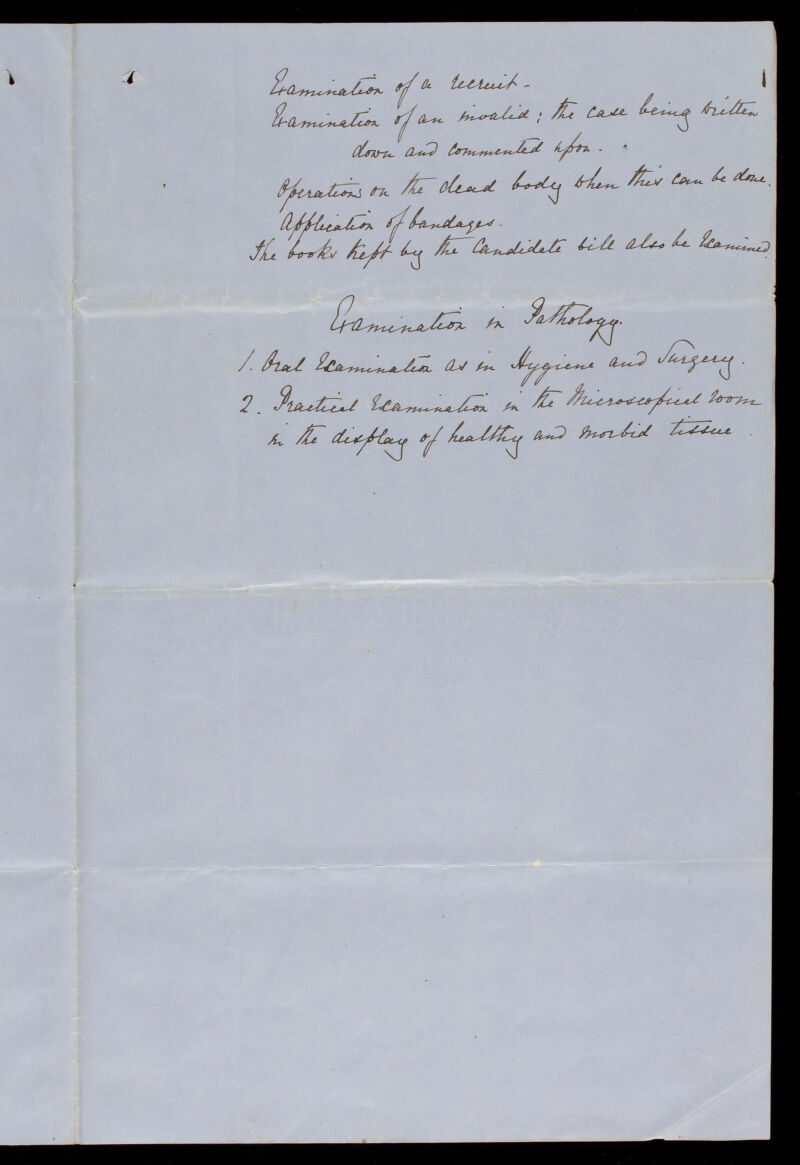 Examination of a recruit.
Examination of an invalid; the case being written
down and commented upon.
Operations on the dead body when this can be done.
Application of bandages.
The books kept by the Candidate will also be Examined.
Examination in Pathology.
1. Oral Examination as in Hygiene and Surgery.
2. Practical Examination in the Microscopical room
in the display of healthy and morbid tissue.